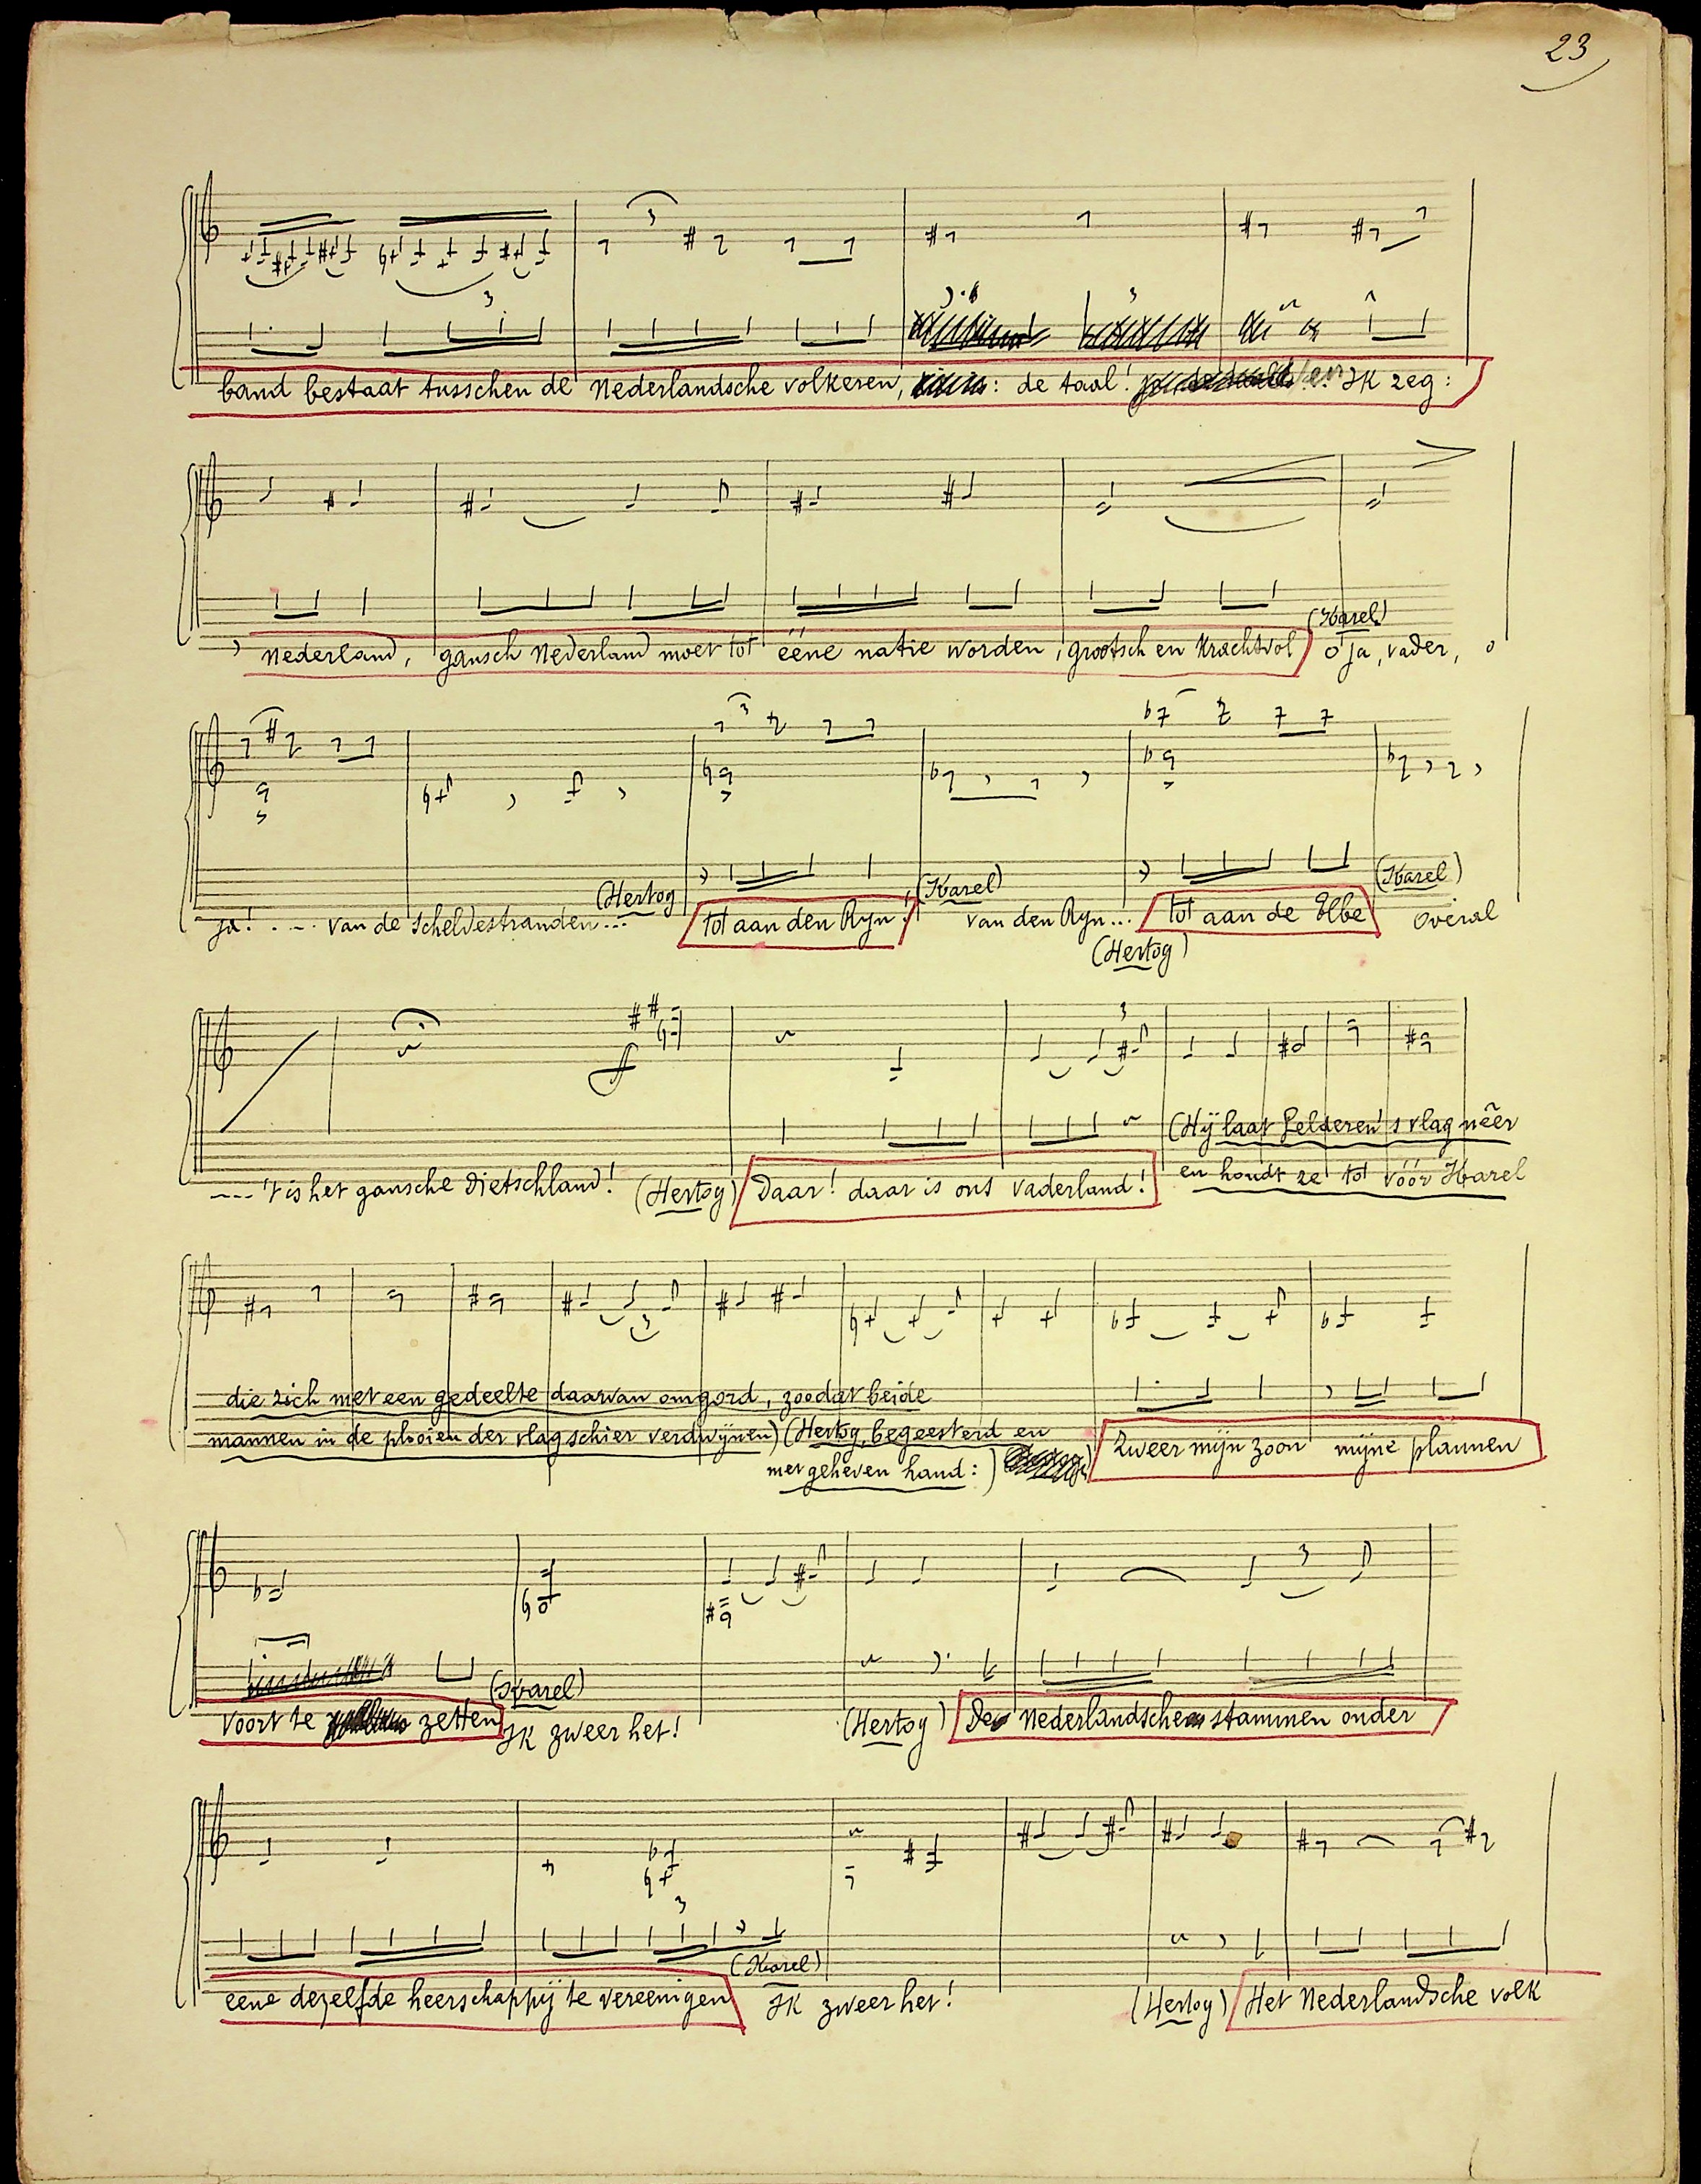 23
band bestaat tusschen de Nederlandsche volkeren, : de taal! en Ik zeg:
(Karel)
Nederland, gansch Nederland moet tot ééne natie worden, grootsch en krachtvol o ja, vader, o
(Hertog (Karel) (Karel)
ja! . - . . van de Scheldestranden... tot aan den Ryn! van den Ryn... tot aan de Elbe Overal
(Hertog)
(Hij laat Gelderen's vlag nêer
--- 't is het gansche Dietschland! (Hertog) Daar! daar is ons vaderland! en houdt ze tot vóór Karel
die zich met een gedeelte daarvan omgord, zoodat beide
mannen in de plooien der vlag schier verdwijnen) (Hertog, begeesterd en
met geheven hand:) Zweer mijn zoon mijne plannen
(Karel)
voort te zetten Ik zweer het! (Hertog) De Nederlandsche stammen onder
(Karel)
eene dezelfde heerschappij te vereenigen Ik zweer het! (Hertog) Het Nederlandsche volk